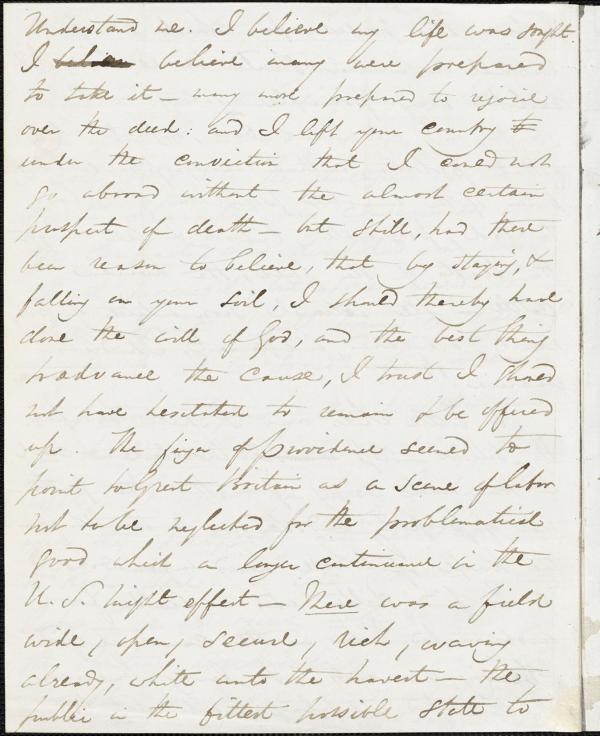 Understand me. I believe my life was sought.
I believe many were prepared
to take it – many more prepared to rejoice
over the deed: and I left your country
under the conviction that I could not
go abroad without the almost certain
prospect of death – but still, had there
been reason to believe, that by staying, &
falling on your soil, I should thereby have
done the will of God, and the best thing
to advance the cause, I trust I should
not have hesitated to remain & be offered
up. The finger of Providence seemed to
point to Great Britain as a scene of labor
not to be neglected for the problematical
good which a longer continuance in the
U. S. might effect – There was a field
wide, open, secure, rich, waving
already, white unto the harvest – The
public in the fittest possible state to